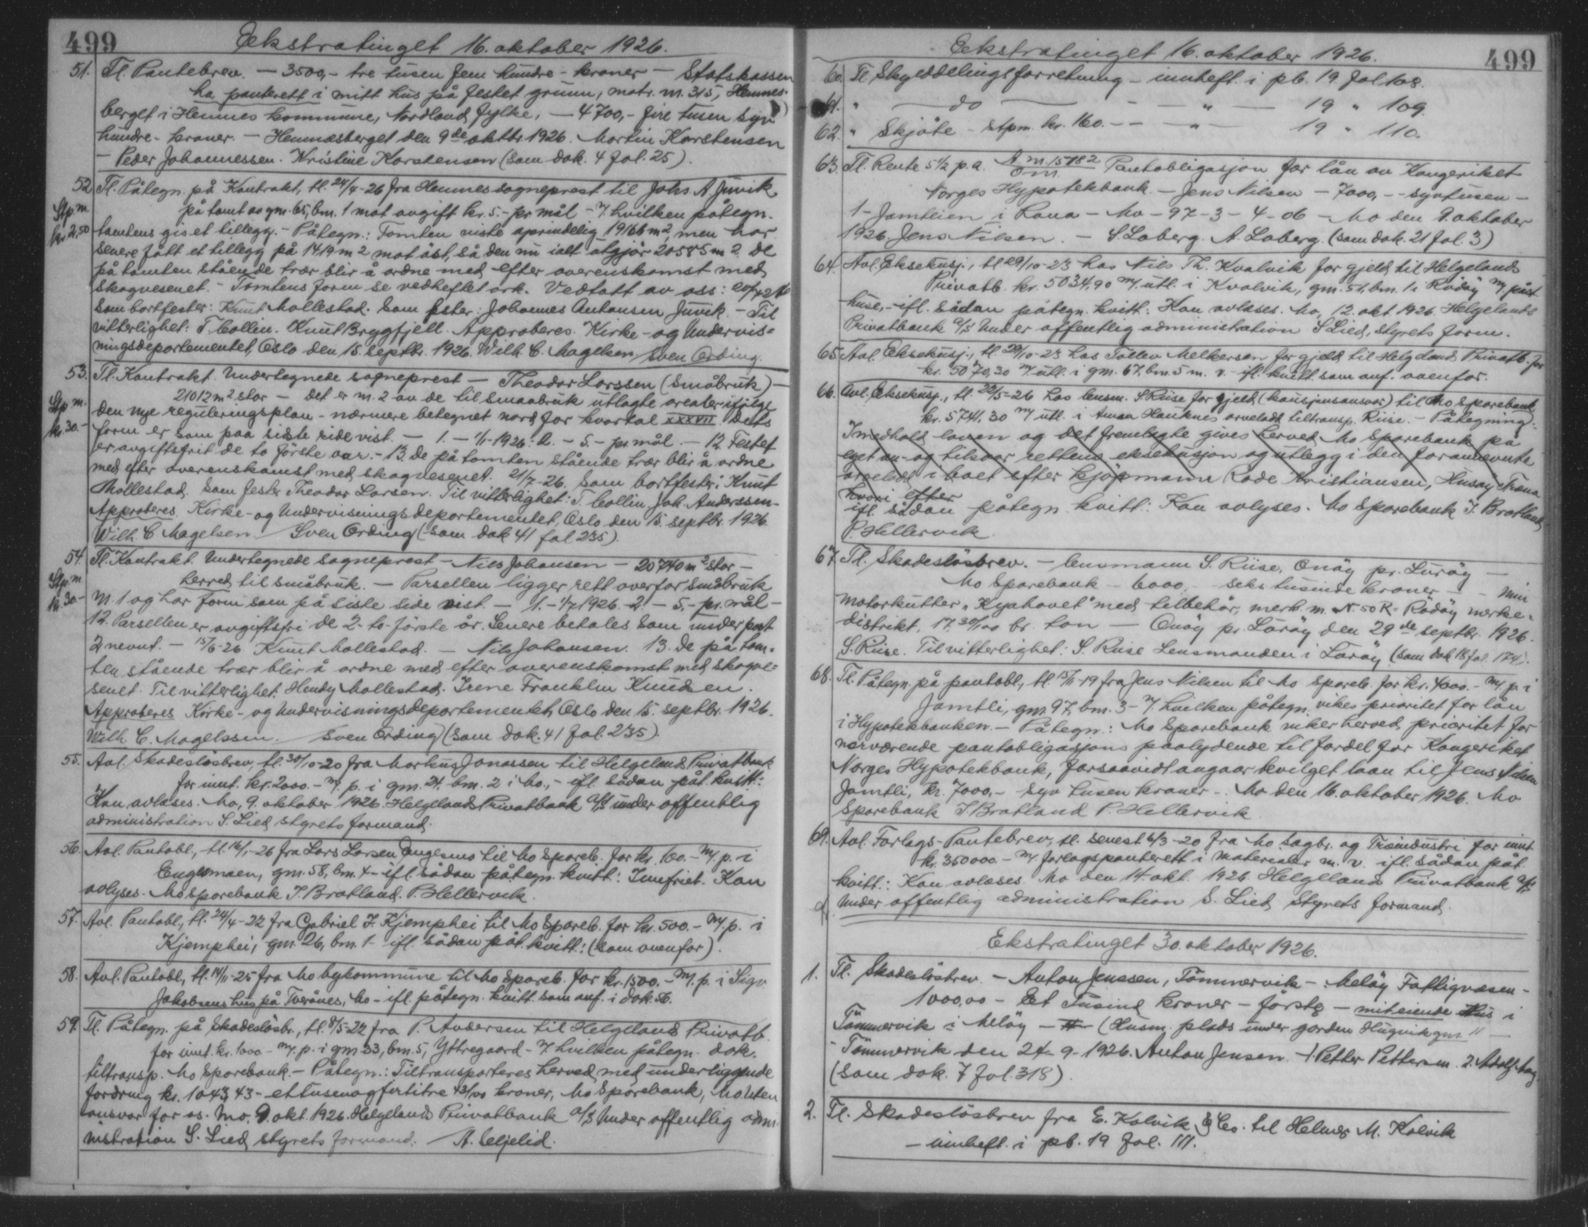 499 Ekstratinget 16. oktober 1926.
51. Tl. Pantebrev. — 3500,- tre tusen fem hundre - kroner — Statskassen
ha panterett i mitt hus på festet grunn, matr. nr. 315, Hemnes-
berget i Hemnes kommune, Nordland fylke, — 4700,- fire tusen syv
hundre - kroner — Hemnesberget den 9de oktbr. 1926. Martin Karstensen
— Peder Johannessen. Kristine Karstensen (som dok. 4 fol. 25).
52. Tl. Påtegn. på Kontrakt, tl. 24/4-26 fra Hemnes sogneprest til Johs A Juvik
på tomt av gnr. 65, bnr. 1 mot avgift kr. 5.- pr mål - ved hvilken påtegn.
Stp. m. kr 2,50
tomtens gis et tillegg. - Påtegn.: Tomten viste oprindelig 19166 m2, men har
senere fått et tillegg på 1419 m2 mot øst, så den nu ialt utgjør 20585 m2. De
på tomten stående trær blir å ordne med efter overenskomst med
skogvesenet. - Tomtens form se vedheftet ark. Vedtatt av oss:
som bortfester: Knut Mollestad. Som fester Johannes Antonsen Juvik. - Til
vitterlighet: T. Collin. Knut Brygfjell. Approberes. Kirke- og Undervis-
ningsdepartementet, Oslo den 15. septbr. 1926. Wilh. C. Magelsen Sven Ording.
53. Tl. Kontrakt. Undertegnede sogneprest — Theodor Larssen (småbruk) —
21012 m2 stor — det er nr. 2 av de til smaabruk utlagte arealer ifølge
Stp. m. kr 30.-
den nye reguleringsplan - nærmere betegnet nord for kvartal XXXVII dets
form er som paa siste side vist. — 1. — 1926. 2. — 5.- pr. mål — 12. Festet
er avgiftsfrit de to første aar. - 13. de på tomten stående trær blir å ordne
med efter overenskomst med skogvesenet. 21/7-26. Som bortfester: Knut
Mollestad. Som fester Theodor Larsen. Til vitterlighet: T. Collin Joh. Anderssen.
Approberes. Kirke- og Undervisningsdepartementet, Oslo den 15. septbr. 1926.
Wilh C Magelsen Sven Ording (som dok 41 fol 235)
54. Tl. Kontrakt. Undertegnede sogneprest — Nils Johansen — 20740 m2 stor —
Stp. m. kr. 30.-
herred, til småbruk. — Parsellen ligger rett overfor småbruk
nr 1 og har form som på siste side vist. — 1926 - 2 — 5,- pr. mål —
12. Parsellen er avgiftsfri de 2. to første år. Senere betales som under post
2 nevnt. — 15/6-26 Knut Mollestad. — Nils Johansen. 13. De på tom-
ten stående trær blir å ordne med efter overenskomst med skogve-
senet. Til vitterlighet: Hendy Mollestad. Irene Franklin Knudsen.
Approberes Kirke- og Undervisningsdepartementet, Oslo den 15. septbr. 1926.
Wilh. C. Magelssen. Sven Ording (som dok. 41 fol 235)
55. Avl. Skadesløsbrev, tl. 30/10-20 fra Markus Jonassen til Helgeland Privatbank
for inntl. kr. 2000.- m. p. i gnr. 24, bnr. 2 i Mo, - ifl. sådan påt. kvitt:
Kan avlæses. Mo, 9. oktober 1926. Helgeland Privatbank A/S under offentlig
administration S. Lied styrets formand.
56. Avl. Pantobl, tl. 16/1-26 fra Lars Larsen Enges to til Mo Spareb. for kr. 600.- m. p. i
gnr. 58, bnr. 4 - ifl sådan påtegn. kvitt: Innfriet. Kan
avlyses. Mo sparebank J Bratland. P. Hellervik.
57. Avl. Pantobl, tl. 24/4-22 fra Gabriel F. Kjemphei til Mo Spareb. for kr. 500.- m. p. i
Kjemphei, gnr. 26, bnr. 1 - ifl. sådan påt. kvitt: (som ovenfor).
58. Avl. Pantobl, tl. 14/11-25 fra Mo bykommune til Mo Spareb. for kr. 1500.- m. p. i Sigv
Jakobsens hus på Tverånes, Mo - ifl. påtegn. kvitt som anf. i dok. 56.
59. Tl. Påtegn. på Skadesløsbr, tl. 8/5-22 fra P. Andersen til Helgeland Privatb.
for inntl. kr. 1000 - m. p. i gnr 33, bnr. 5, Yttregaard - ved hvilken påtegn. dok.
tiltransp. Mo Sparebank - Påtegn.: Tiltransporteres herved med underliggende
fordring kr. 1043,43 - ettusenogførtitre 43/100 kroner, Mo Sparebank, Mo uten
ansvar for os. Mo, 9 okt 1926. Helgeland Privatbank A/S Under offentlig admi-
nistration S. Lied, styrets formand. A.
499 Ekstratinget 16. oktober 1926.
60. Tl. Skylddelingsforretning - innheft i pb. 19 fol 108
61. " — do — " — 19 " 109
62. " Skjøte - stpm. kr. 160. — " — 19 " 110.
63. Tl. Rente 5½ p.a. A nr 15782 Pantobligasjon for lån av Kongeriket
Norges Hypotekbank. - Jens Nilsen - 7000,- syvtusen -
1 - Jamtlien i Rana - Mo - 97 - 3 - 4 - 06 - Mo den 9 oktober
1926 Jens Nilsen. - S Laberg. A Laberg. (som dok. 21 fol. 3)
64. Avl. Eksekusj., tl 29/10-23 hos Nils Th. Kvalvik for gjeld til Helgelands
Privatb. kr. 5034,90 m. utl. i Kvalvik, gnr. 51, bnr. 1 i Rødøy m. påst.
huse, - ifl. sådan påtegn. kvitt: Kan avlæses. Mo, 12. okt 1926. Helgelands
Privatbank A/S Under offentlig administration S Lied, styrets form.
65. Avl. Eksekusj, tl 29/10-23 hos Tollev Melkersen for gjeld til Helgeland Privatb. for
kr. 5070,20 m. utl. i gnr. 67, bnr. 5 m. v. - ifl. kvitt som anf. ovenfor.
66. Avl. Eksekusj, tl 26/5-26 hos lensm. S Riise for gjeld (kausjonsansvar) til Mo Sparebank
kr. 5741,30 m. utl. i Anna Hauknes arvelodd tiltransp. Riise. - Påtegning:
I medhold loven og det fremlagte gives herved Mo Sparebank på
eget an- og tilsvar rettens eksekusjon og utlegg i den foranevnte
arvelodd i boet efter kjøpmann Rode Kristiansen, Husøy, Træna
hvori efter
ifl. sådan påtegn. kvitt: Kan avlyses. Mo Sparebank J. Bratland,
P. Hellervik.
67. Tl. Skadesløsbrev. — lensmann S. Riise, Onøy pr. Lurøy —
Mo Sparebank - 6000,- seks tusinde kroner - min
motorkutter "Kyahovet" med tilbehør, merk. nr. N-50 R. Rødøy merke-
distrikt, 17 30/100 br. ton — Onøy pr Lurøy den 29de septbr. 1926.
S. Riise. Til vitterlighet: S. Riise Lensmanden i Lurøy (som dok 18 fol. 174).
68. Tl. Påtegn på pantobl, tl 15/11-19 fra Jens Nilsen til Mo spareb. for kr. 4000.- m. p. i
Jamtli, gnr. 97, bnr. 3 - ved hvilken påtegn. vikes prioritet for lån
i Hypotekbanken. - Påtegn.: Mo Sparebank viker herved prioritet for
nærværende pantobligasjons paalydende til fordel for Kongeriket
Norges Hypotekbank, forsaavidt angaar bevilget laan til Jens Nilsen
Jamtli, kr. 7000,- syv tusen kroner. - Mo den 16. oktober 1926. Mo
Sparebank J Bratland P. Hellervik
69. Avl. Forlags-Pantebrev, tl. senest 6/3-20 fra Mo Sagbr. og Træindustri for inntl
kr. 350000 - m. forlagspanterett i materialer m. v. ifl. sådan påt
kvitt.: Kan avlæses. Mo den 14 okt. 1926 Helgeland Privatbank A/S
Under offentlig administration S. Lied, Styrets formand.
Ekstratinget 30. oktober 1926.
1. Tl. Skadesløsbrev - Anton Jenssen, Tømmervik - Meløy Fattigvæsen -
1000,00 - Et Tusind kroner - første - miteiende Hus i
Tømmervik i Meløy - (Husm. plads under gården Hugvik gnr. 11
- Tømmervik den 24-9-1926. Anton Jensen. 1 Petter Pettersen. 2. Adolf
(som dok. 7 fol. 318).
2. Tl. Skadesløsbrev fra E. Kolvik & Co. til Helmer M. Kolvik
- innheft. i pb. 19 fol. 111.